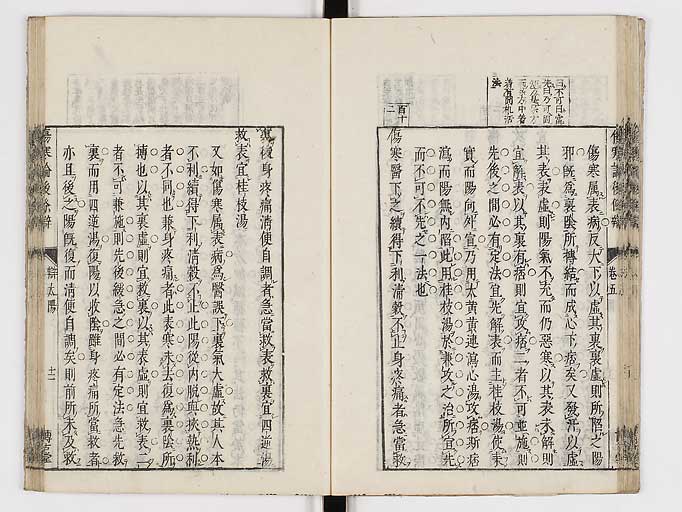 傷寒属表病反大下以虛其裏裏虛則所陷之陽
邪既為裏陰所摶結而成心下痞矣又發汗以虛
其表表虛則陽氣不充而仍惡寒以其表未解則
宜解表以其裏有痞則宜攻痞二者不可並施則
先後之間必有定法宜先解表而主桂枝湯使表
實而陽向外宜乃用大黃黃連瀉心湯攻痞斯痞
瀉而陽無內陷此用桂枝湯於兼攻之治所宜先
而不可不先之一法也
百十二
傷寒醫下之續得下利清穀不止身疼痛者急當救
裏後身疼痛清便自調者急當救表救裏宜四逆湯
救表宜桂枝湯
又如傷寒属表病為醫誤下裏氣大虛故其人本
不利續得下利清穀不止此陽從內脫與挾熱利
者不同也兼身疼痛者此表寒未去復為裏陰所
摶也以其裏虛則宜救裏以其表虛則宜救表二
者不可兼施則先後緩急之間必有定法急先救
裏而用四逆湯復陽以收陰雖身疼痛所當救者
亦且後之陽既復而清便自調矣則前所未及救
辯太陽